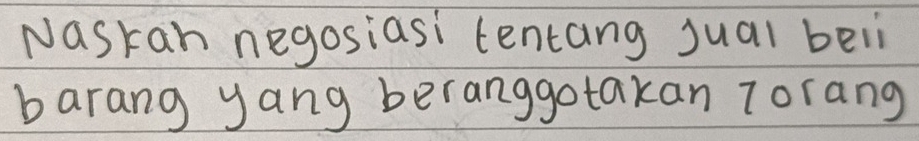 Naskah negosiasi tentang jual beli
barang yang beranggotakan 7 orang